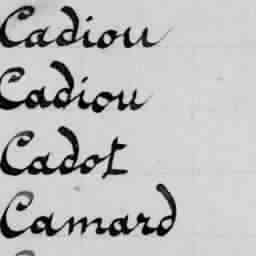 Cadiou
Cadiou
Cadot
Camard